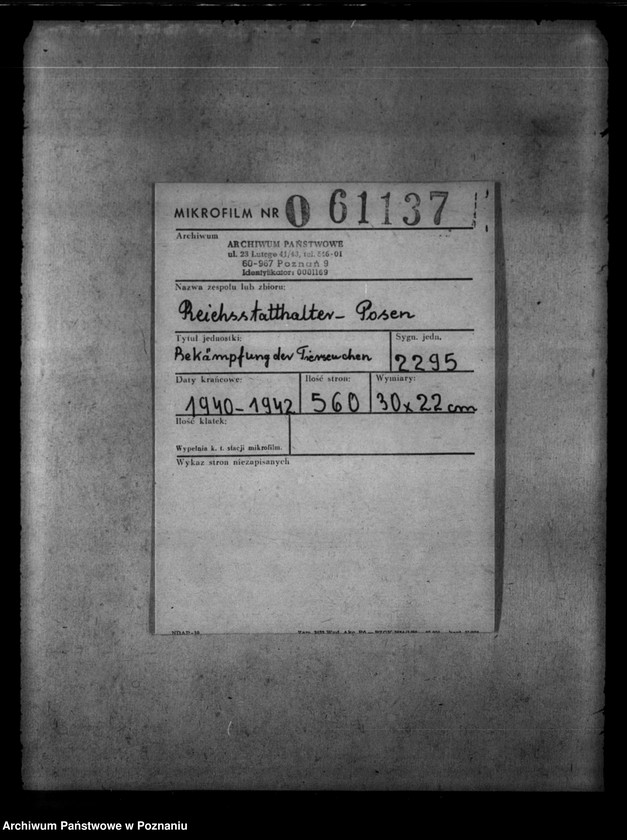 MIKROFILM NR 0 61137
Archiwum
ARCHIWUM PAŃSTWOWE
ul. 23 Lutego 41/43, tel. 546-01
60-967 Poznań 9
Identyfikator: 0001169
Nazwa zespołu lub zbioru:
Reichsstatthalter - Posen
Tytuł jednostki: Sygn. jedn.
Bekämpfung der Tierseuchen 2295
Daty krańcowe: Ilość stron: Wymiary:
1940-1942 560 30x22 cm
Ilość klatek:
Wypełnia k. t. stacji mikrofilm.
Wykaz stron niezapisanych
Archiwum Państwowe w Poznaniu